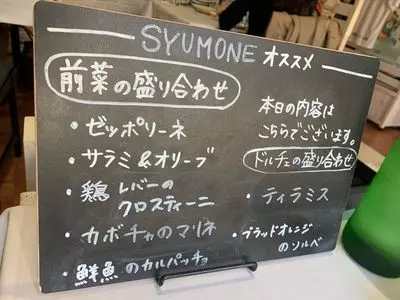 SYUMONE オススメ
前菜の盛り合わせ
・ゼッポリーネ
・サラミ&オリーブ
・鶏レバーの
クロスティーニ
・カボチャのマリネ
・鮮魚のカルパッチョ
本日の内容は
こちらでございます。
ドルチェの盛り合わせ
・ティラミス
・ブラッドオレンジ
のソルベ